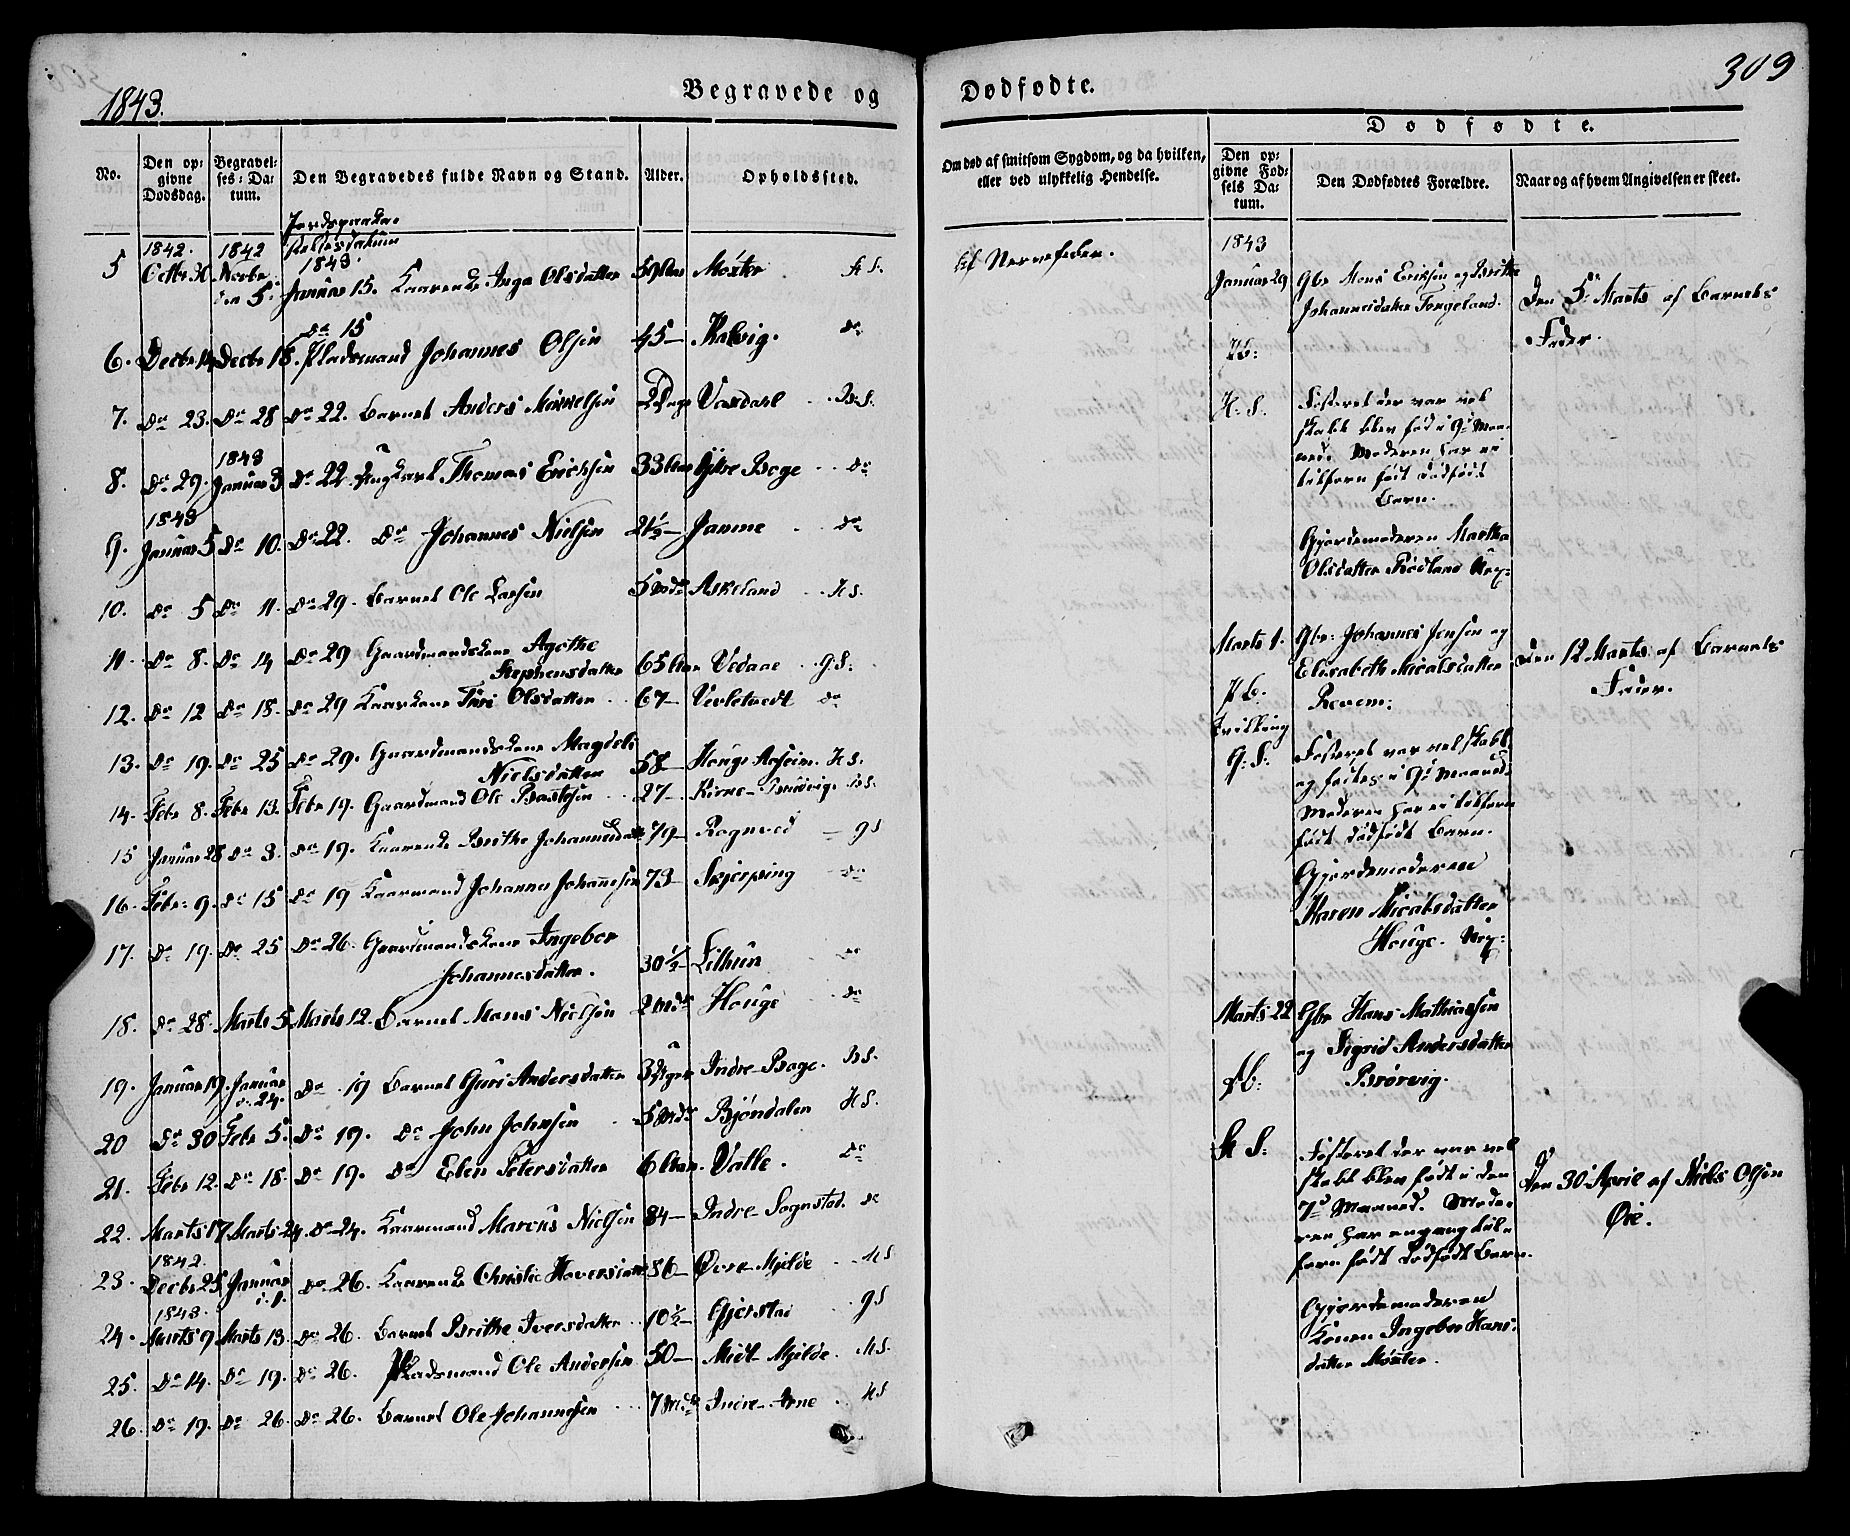 1843.
Begravede og
Dødfødte.
309
No.
Den opgivne Dødsdag.
Begravelses-Datum.
Den Begravedes fulde Navn og Stand.
Alder.
Opholdssted.
Om død af smitsom Sygdom, og da hvilken,
eller ved ulykkelig Hendelse.
Dødfødte.
Den opgivne Fødsels Datum.
Den Dødfødtes Forældre.
Naar og af hvem Angivelsen er skeet.
Jordspaakastelsesdatum
5 1842. Octbr 30 1842 Novbr den 5. 1843. Januar 15. Kaarenke Inga Olsdatter 59 Moster HS. af Nervefeber.
6. Decbr 14 Decbr 18. Do 15 Pladsmand Johannes Olsen 45— Kalvig. Do
7. Do 23. Do 28 Do 22. Barnet Anders 2 Dage Vaxdal
8. Do 29. 1843 Januar 3 Do 22. Ungkarl Thomas Erichsen 33 Boge Do
9. 1843 Januar 5 Do 10. Do 22. Do Johannes Nielsen 21½— Jamne Do
10. Do 5 Do 11. Do 29. Barnet Ole Larsen 5 Mdr Askeland HS.
11. Do 8. Do 14 Do 29 Gaardmandskone Agethe
Stephensdatter 65 Vedaae GS.
12. Do 12 Do 18. Do 29 Kaarkone Turi Olsdatter 67— Do
13. Do 19. Do 25 Do 29. Gaardmandskone Magdeli
Nielsdatter 58— Houge HS.
14. Febr 8. Febr 13. Febr 19. Gaardmand Ole 27—
15 Januar 28 Do 3. Do 19. Kaarenke Brithe Johannesdatter 79— Rognved GS
16. Febr. 9. Do 15 Do 19 Kaarmand Johannes Johannesen 73— Skjerping Do
17. Do 19. Do 25 Do 26. Gaardmandskone Ingebor
Johannesdatter. 30½— Lilhun Do
18. Do 28. Marts 5 Marts 12. Barnet Mons Nielsen 2 Mdr Houge Do
19. Januar 19. Januar d. 24. Do 19 Barnet Guri Andersdatter 3 Uger Indre-Boge. BS.
20 Do 30 Febr 5. Do 19. Do John Johnsen 5 Mdr Bjøndalen HS.
21. Febr 12. Do 18. Do 19. Do Elen Petersdatter 6 Valle. Do
22. Marts 17 Marts 24. Do 24. Kaarmand Marcus Nielsen 84— Indre-Songstad. Do
23. 1842. Decbr 25 Januar d. 1. Do 26. Kaarenke Christie Haversdatter 86— Øvre-Mjelde HS
24. 1843. Marts 9 Marts 13. Do 26. Barnet Brithe Iversdatter 10½— Gjerstad GS
25. Do 14. Do 19. Do 26. Pladsmand Ole Andersen 50— Midt-Mjelde. HS.
26. Do 19. Do 26. Do 26. Barnet Ole Johannesen 7 Mdr Indre-Arne HS
1843
Januar 29
Gbr Mons Ericksen og Brithe
Johannesdatter Torgeland.
Den 5. Marts af Barnets
Fader.
H. S.
Fosteret der var vel
skabt blev fød i 9d Maaned.
Moderen har ei
tilforn født dødfødt
Barn.
Gjordemoderen Martha
Olsdatter Rødland
Marts 1.
Gbr. Johannes Jensen og
Elisabeth Micalsdatter
Revem:
Den 12 Marts af Barnets
Fader.
Tvilling
G. S.
Fosteret var vel skabt
og fødtes i 9d Maaned.
Moderen har ei tilforn
født dødfødt Barn.
Gjordemoderen
Karen Micalsdatter
Houge.
Marts 22
Gbr Hans Mathiassen
og Sigrid Andersdatter
Brørvig.
H. S:
Fosteret der var vel
skabt blev født i den
7d Maaned. Moderen
har engang tilforn
født dødfødt Barn.
Den 30 April af Niels Olsen
Øie.
Gjordemoderen
Konen Ingebor Hansdatter
Moster.